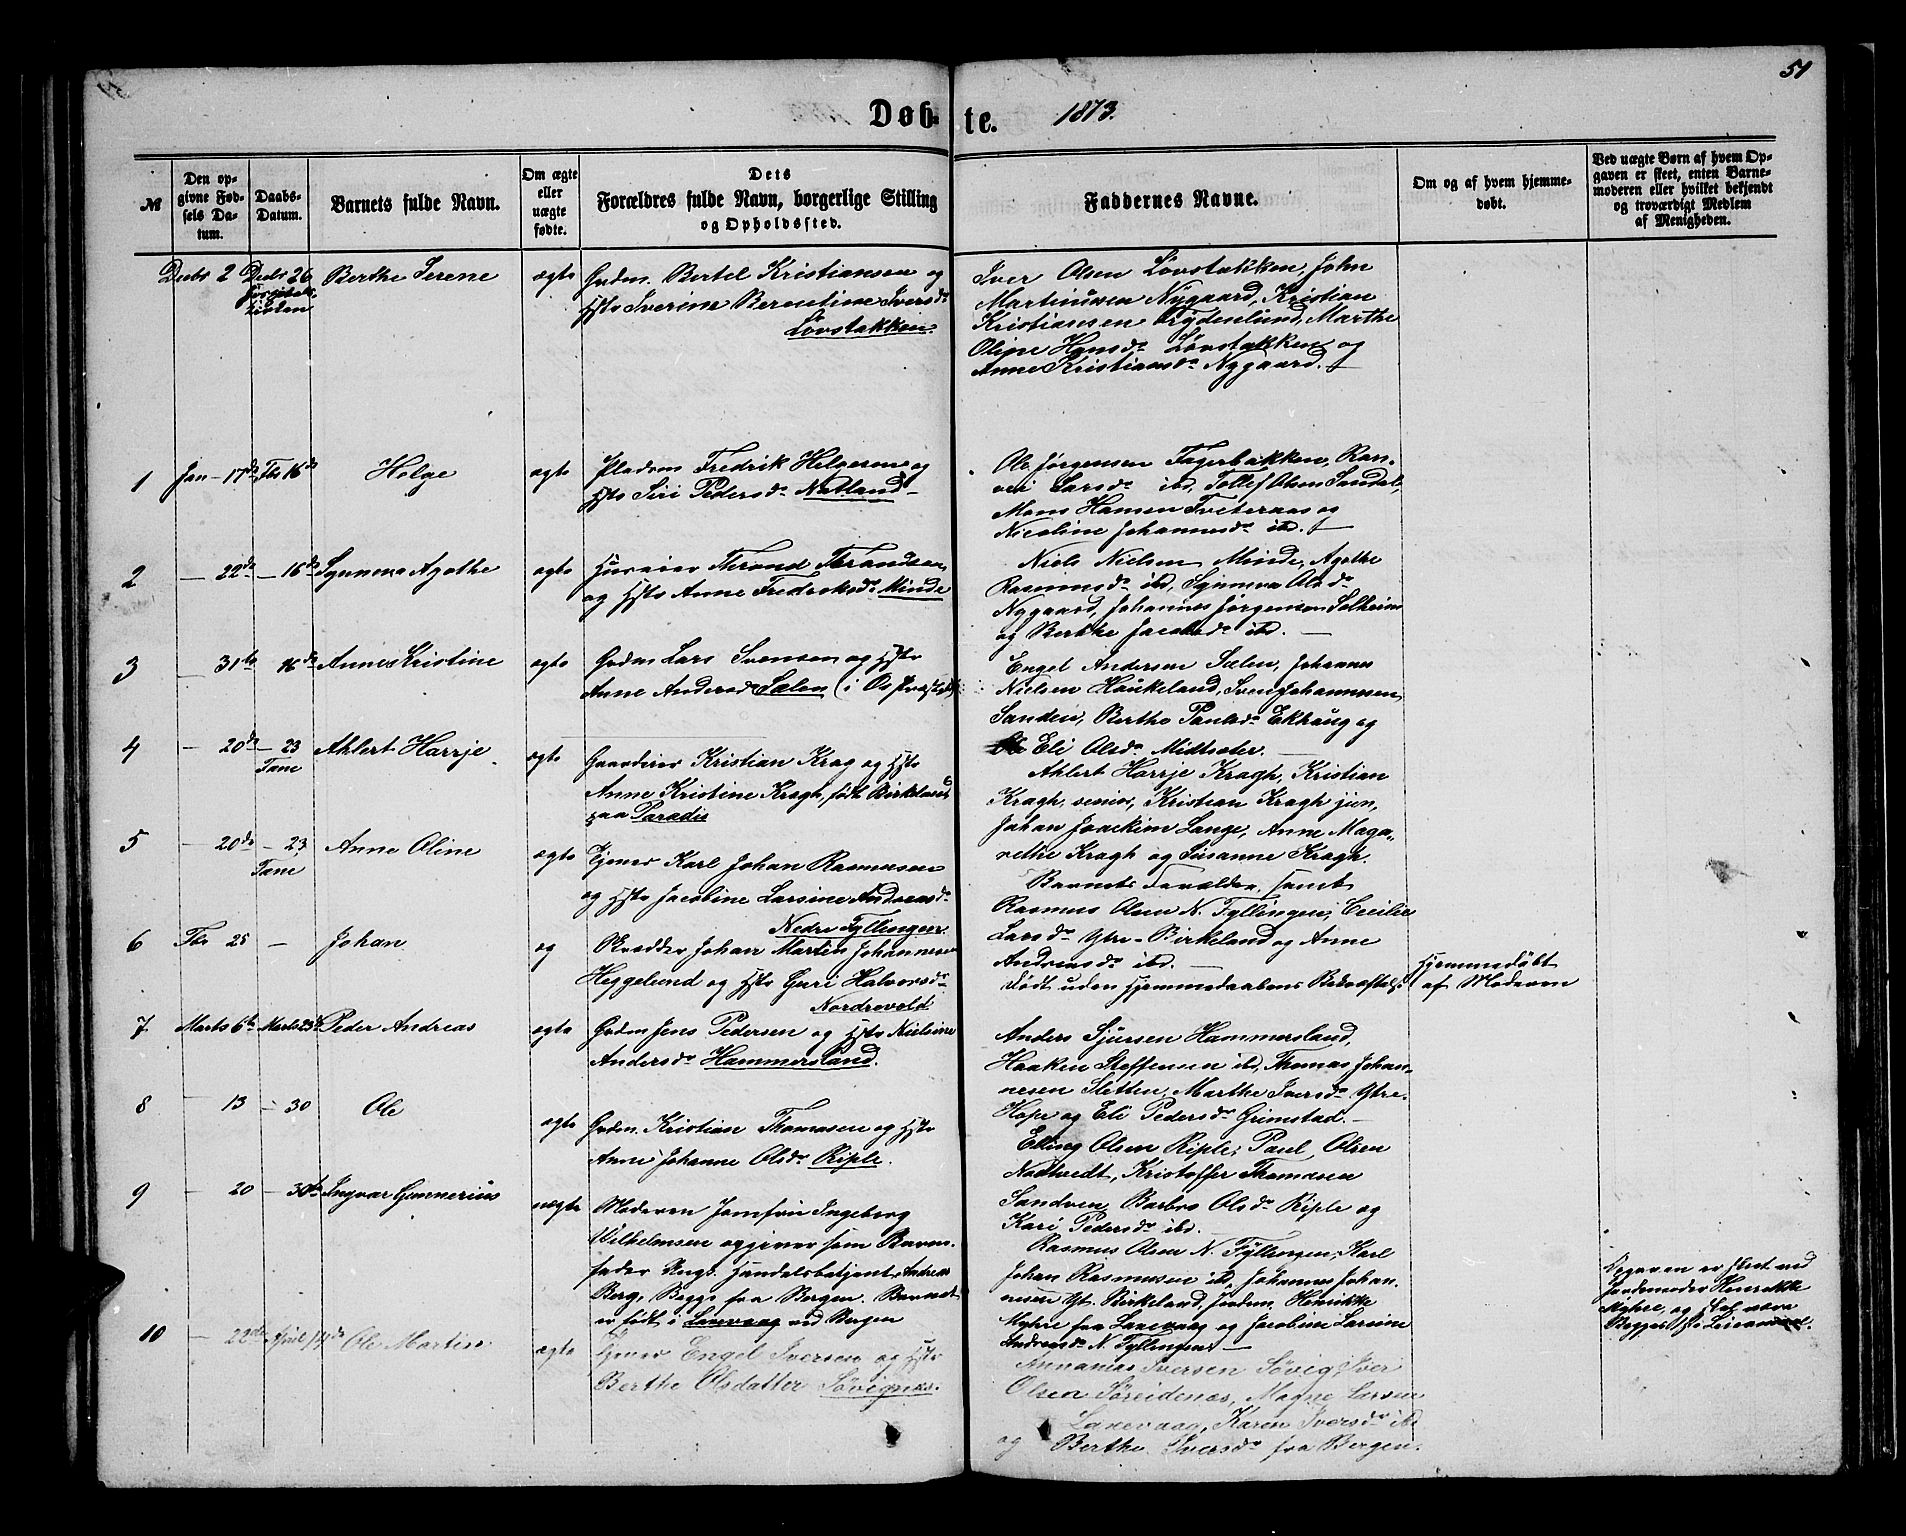 51
Døbte. 1873.
№
Den opgivne Fødsels Datum.
Daabs-Datum.
Barnets fulde Navn.
Om ægte eller uægte fødte.
Dets Forældres fulde Navn, borgerlige Stilling og Opholdssted.
Faddernes Navne.
Om og af hvem hjemmedøbt.
Ved uægte Børn af hvem Opgaven er skeet, enten Barnemoderen eller hvilket bekjendt og troværdigt Medlem af Menigheden.
Decbr 2 Decbr 26 Berthe Serene ægte Grdm. Bertel Kristiansen og
Hstr Iverine Berentine Iversdr
Løvstakken.
Iver Olsen Løvstakken, John
Martinusen Nygaard, Kristian
Kristiansen Frydenlund, Marthe
Oline Hansdr Løvstakken og
Anne Kristiansdr Nygaard.
1 Jan – 17de Fbr 16de Helge ægte Pladsm Fredrik Helgesen og
Hstr Siri Pedersdr Natland
Ole Jørgensen Fagerbakken, Ran-
vei Larsdr ibd, Tollef Olsen Sandal,
Mons Hansen Tveteraas og
Nicoline Johannesdr ibd.
2 – 22de – 16de Synneva Agothe ægte Huseier Trond Trondsen
og Hstr Anne Fredriksdr Minde
Niels Nielsen Minde, Agothe
Rasmusdr ibd, Synneva Olsdr
Nygaard, Johannes Jørgensen Solheim
og Berthe Jacobsdr ibd.
3 – 31te 16de Anne Kristine ægte Grdm Lars Svensen og Hstr
Anne Andersdr Sælen (i Os Præstegj)
Engel Andersen Sælen, Johannes
Nielsen Haukeland, Sven Johannesen
Sanden, Berthe Paulsdr Ekhaug og
Eli Olsdr Midtsæter.
4 – 20de – 23 Fane Ahlert Harrje ægte Gaardeier Kristian Krag og Hstr
Anne Kristine Kragh, født Birkeland
paa Paradis
Ahlert Harrje Kragh, Kristian
Kragh, senior, Kristian Kragh jun,
Johan Joackim Lange, Anne Maga-
rethe Kragh og Susanne Kragh.
5 – 20de – 23 Fane Anne Oline ægte Ejener Karl Johan Rasmusen
og Hstr Jacobine Larsine Andreasdr
Nedre Fyllingen
Barnets Forældre, samt
Rasmus Olsen N. Fyllingen, Cecilie
Larsdr Ytre-Birkeland og Anne
Andreasdr ibd.
6 Fbr 25 – Johan æg Skrædder Johan Martin Johannesen
Heggelund og Hstr Guri Halvorsdr
Nordrevold
Født uden Hjemmedaabens Bekræftelse
Hjemmedøbt
af Moderen
7 Marts 6te Marts 23 Peder Andreas ægte Grdm Jens Pedersen og Hstr Nielsine
Andersdr Hammersland.
Anders Sjursen Hammersland,
Haaken Steffensen ibd, Thomas Johan-
nesen Sletten, Marthe Iversdr Ytre-
Hope og Eli Pedersdr Grimstad.
8 – 13 – 30 Ole ægte Grdm. Kristian Thomasen og Hstr
Anne Johanne Olsdr Riple.
Elling Olsen Riple, Paul Olsen
Nattvedt, Kristoffer Thomasen
Sandven, Barbro Olsdr Riple og
Kari Pedersdr ibd.
9 – 20 – 30te Ingvar Gunnerius uægte Moderen Jomfru Ingeborg
Wilhelmsen opgiver som Barne-
fader Ungk. Handelsbetjent Andreas
Berg Beggs fra Bergen. Barnet
er født i Laxevaag ved Bergen
Rasmus Olsen N. Fyllingen, Karl
Johan Rasmusen ibd, Johannes Johan-
nesen Yt. Birkeland, Jordm. Henrikke
Myhre fra Laxevaag og Jacobine Larsine
Andreasdr N. Fyllingen
Opgaven er skeet ved
Jordemoder Henrikke
Myhre, og skal være
10 – 22de April 14de Ole Martin ægte Ejener Engel Iversen og Hstr
Berthe Olsdatter Søvignæs.
Annanias Iversen Søvig, Iver
Olsen Søreidenæs, Magne Larsen
Laxevaag, Karen Iversdr ibd
og Berthe Iversdr fra Bergen.